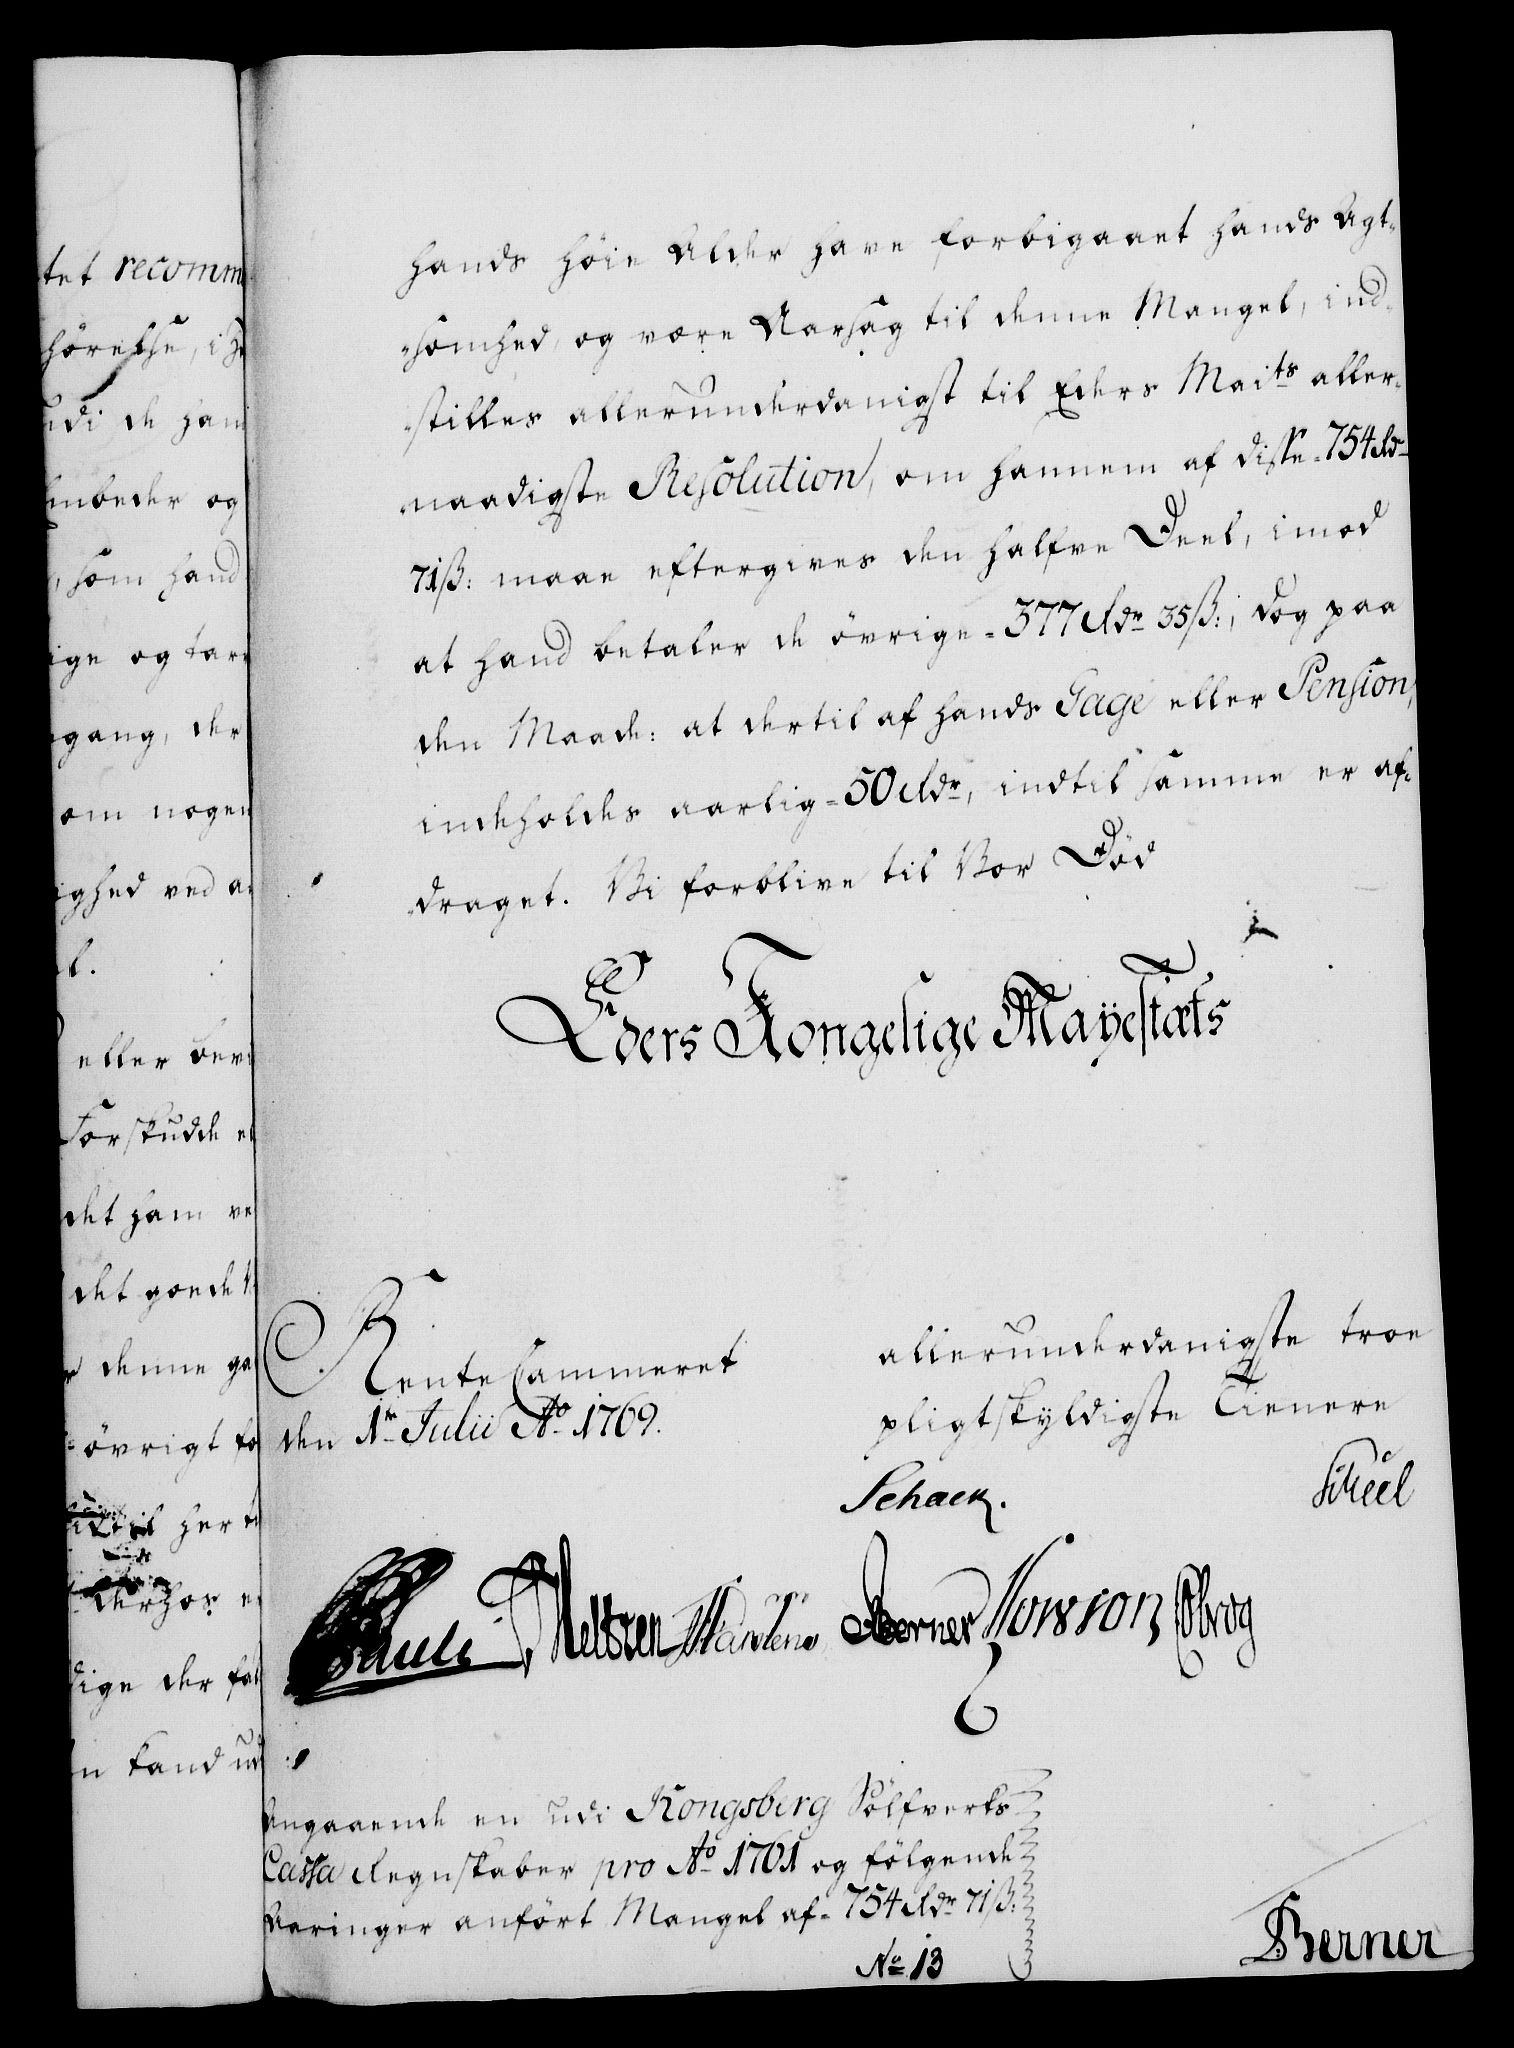 tet recomm
hörelse, i
udi de ham
Embeder og
som hand
ige og tarv
gang, der
om nogen
ighed ved
l.
eller bevi
Forskudde
det ham ve
det goede
denne ga
övrigt fo
her ti
derhos
dige der fal
kand ud
hands höie Alder have forbigaaet hands Agt-
-somhed, og være Aarsag til denne Mangel, ind-
-stilles allerunderdanigst til Eders Maits aller-
-naadigste Resolution, om hannem af disse - 754 Rdr
71 ß: maae eftergives den halfve Deel, imod
at hand betaler de övrige - 377 Rdr 35 ß:, dog paa
den Maade: at dertil af hands Gage eller Pension,
indeholdes aarlig - 50 Rdr, indtil samme er af-
-draget. Vi forblive til Vor Död
Eders Kongelige Mayestæts
RenteCammeret
den 1te Julii Ao 1769.
allerunderdanigste troe
pligtskyldigste Tienere
Schack. Scheel
Pauli Meltzen Martens Berner Howson Obrog
Angaaende en udi Kongsberg Sölfverks
Cassa Regnskaber pro Ao 1761 og fölgende
Aaringer anfört Mangel af - 754 Rdr 71 ß:
No 13
Berner